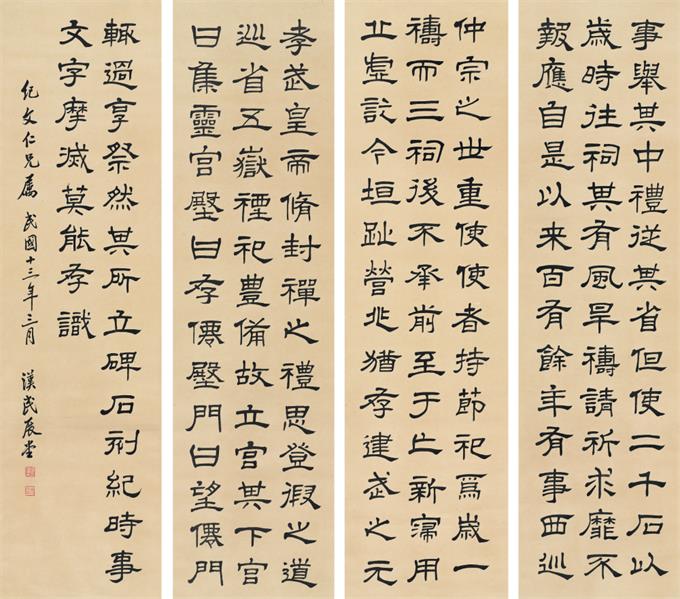 事舉其中禮從其省但使二千石以
歲時往祠其有風旱禱請祈求靡不
報應自是以来百有餘年有事西巡
仲宗之世重使使者持節祀焉歲一
禱而三祠後不承前至于亡新寖用
丘虛訖今垣趾營兆猶存建武之元
孝武皇帝脩封禪之禮思登徦之道
巡省五嶽禋祀豊備故立宮其下宮
曰集靈宮殿曰存僊殿門曰望僊門
輒過亨祭然其所立碑石刻紀時事
文字摩滅莫能存識
紀文仁兄屬 民國十三年三月 漢民展堂